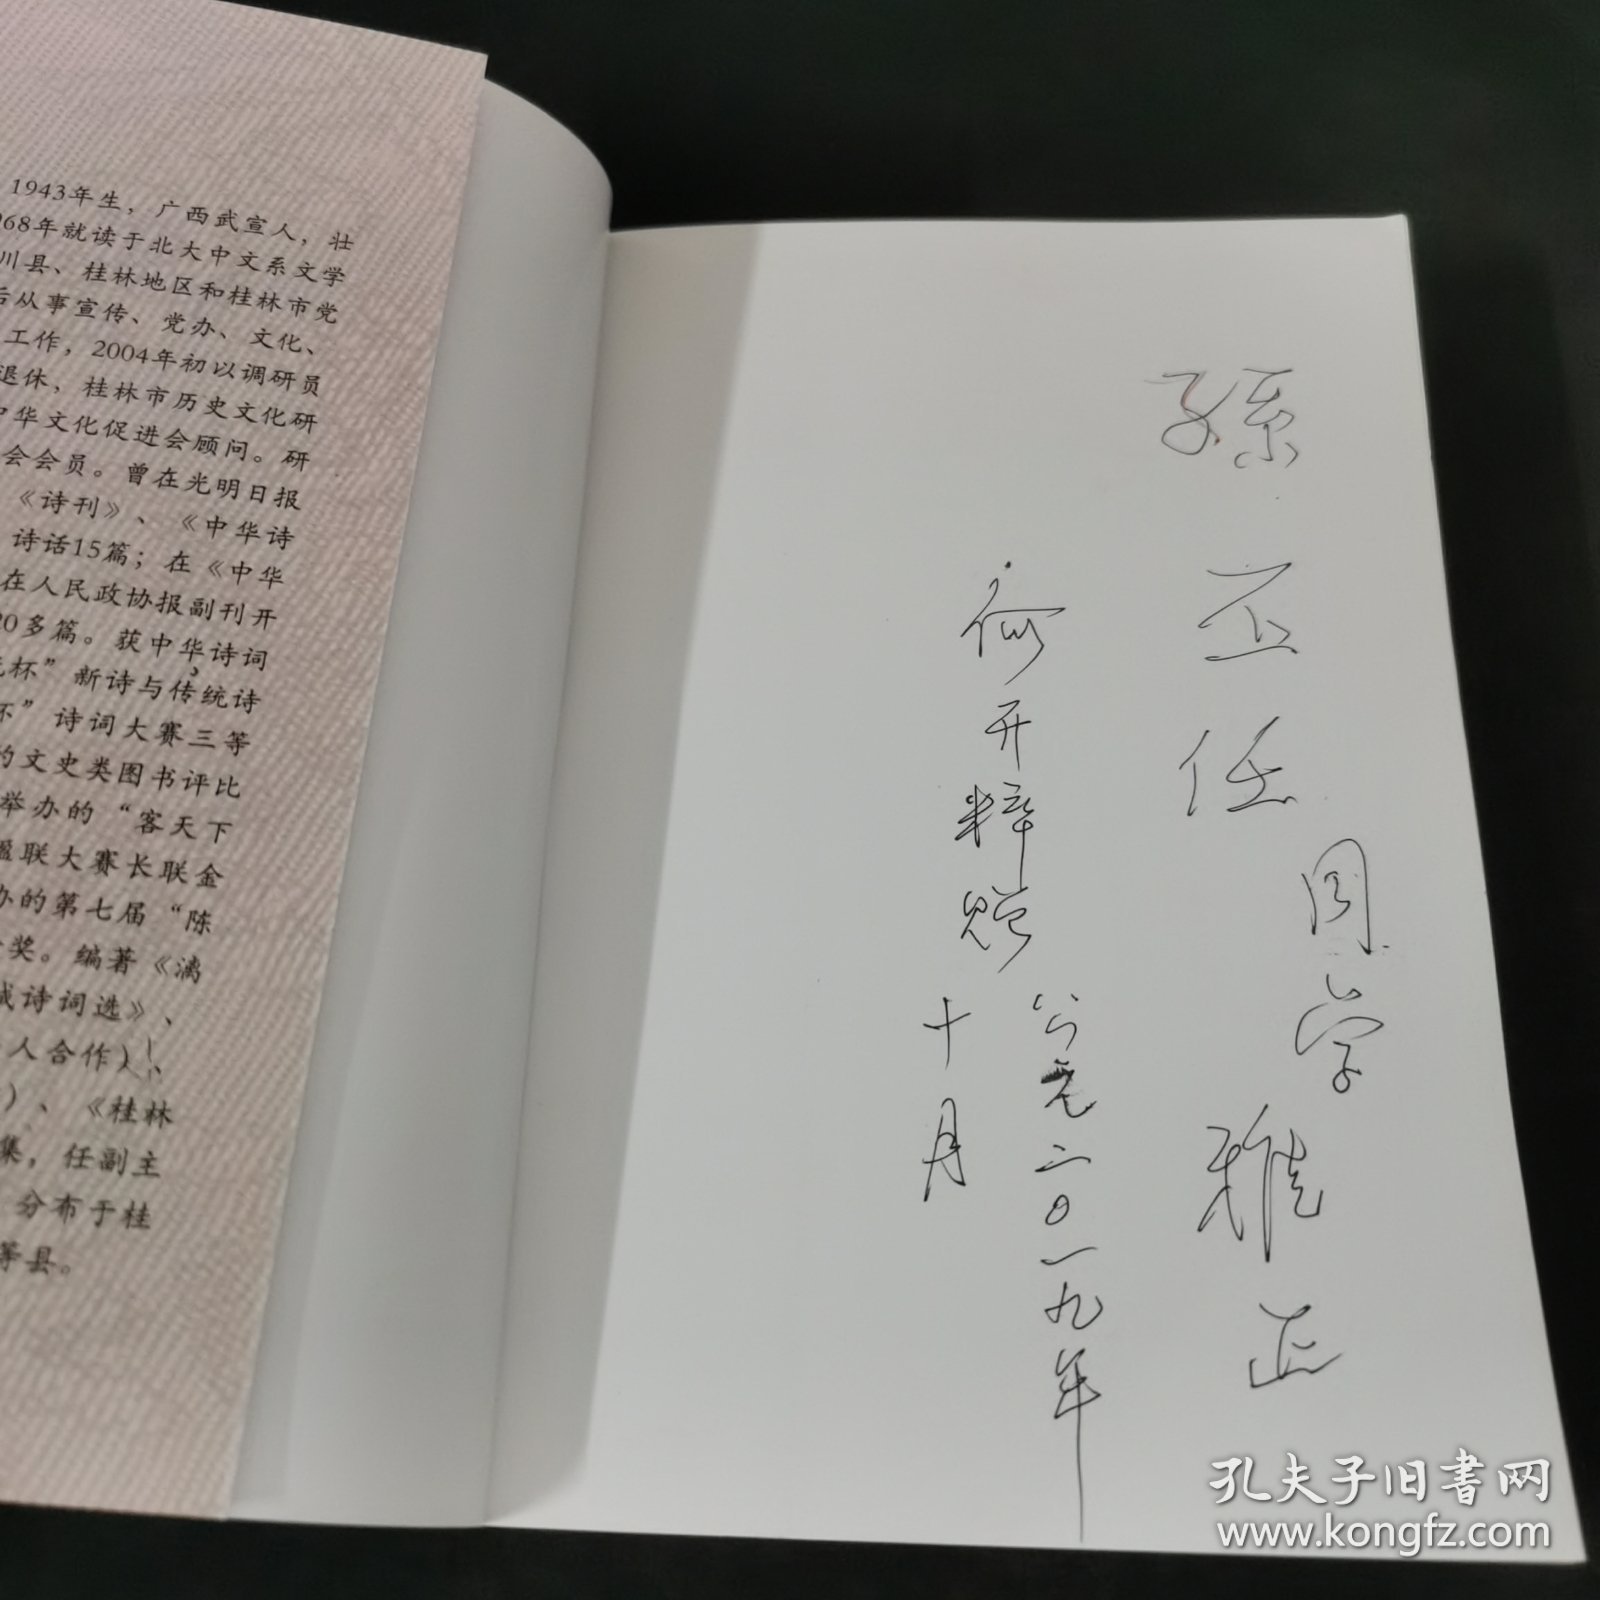 1943年生，广西武宣人，壮
968年就读于北大中文系文学
川县、桂林地区和桂林市党
后从事宣传、党办、文化、
工作，2004年初以调研员
退休，桂林市历史文化研
中华文化促进会顾问。研
会会员。曾在光明日报
《诗刊》、《中华诗
诗话15篇；在《中华
在人民政协报副刊开
20多篇。获中华诗词
杯”新诗与传统诗
杯”诗词大赛三等
的文史类图书评比
举办的“客天下
楹联大赛长联金
办的第七届“陈
奖。编著《漓
城诗词选》、
人合作）、
）、《桂林
集，任副主
分布于桂
等县。
孫
任
同学
雅正
何开粹赠
公元二〇一九年
十月
孔夫子旧书网
www.kongfz.com